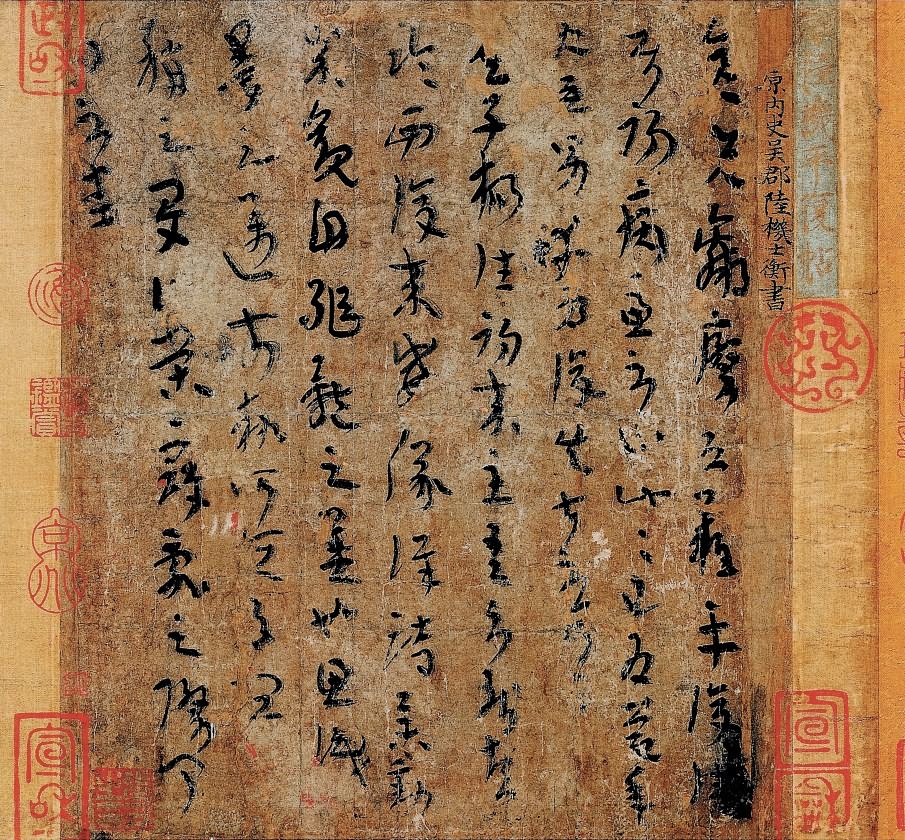 原內史吳郡陸機士衡書
彦先羸瘵恐難平復往
屬初病慮不止此此已為慶承
使唯男幸為復失前憂耳
吳子楊往初來主吾不能盡
臨西復來威儀詳跱舉動
成觀自軀體之美也思識
量之邁前執所恒有宜
稱之夏伯榮寇亂之際聞
問不悉